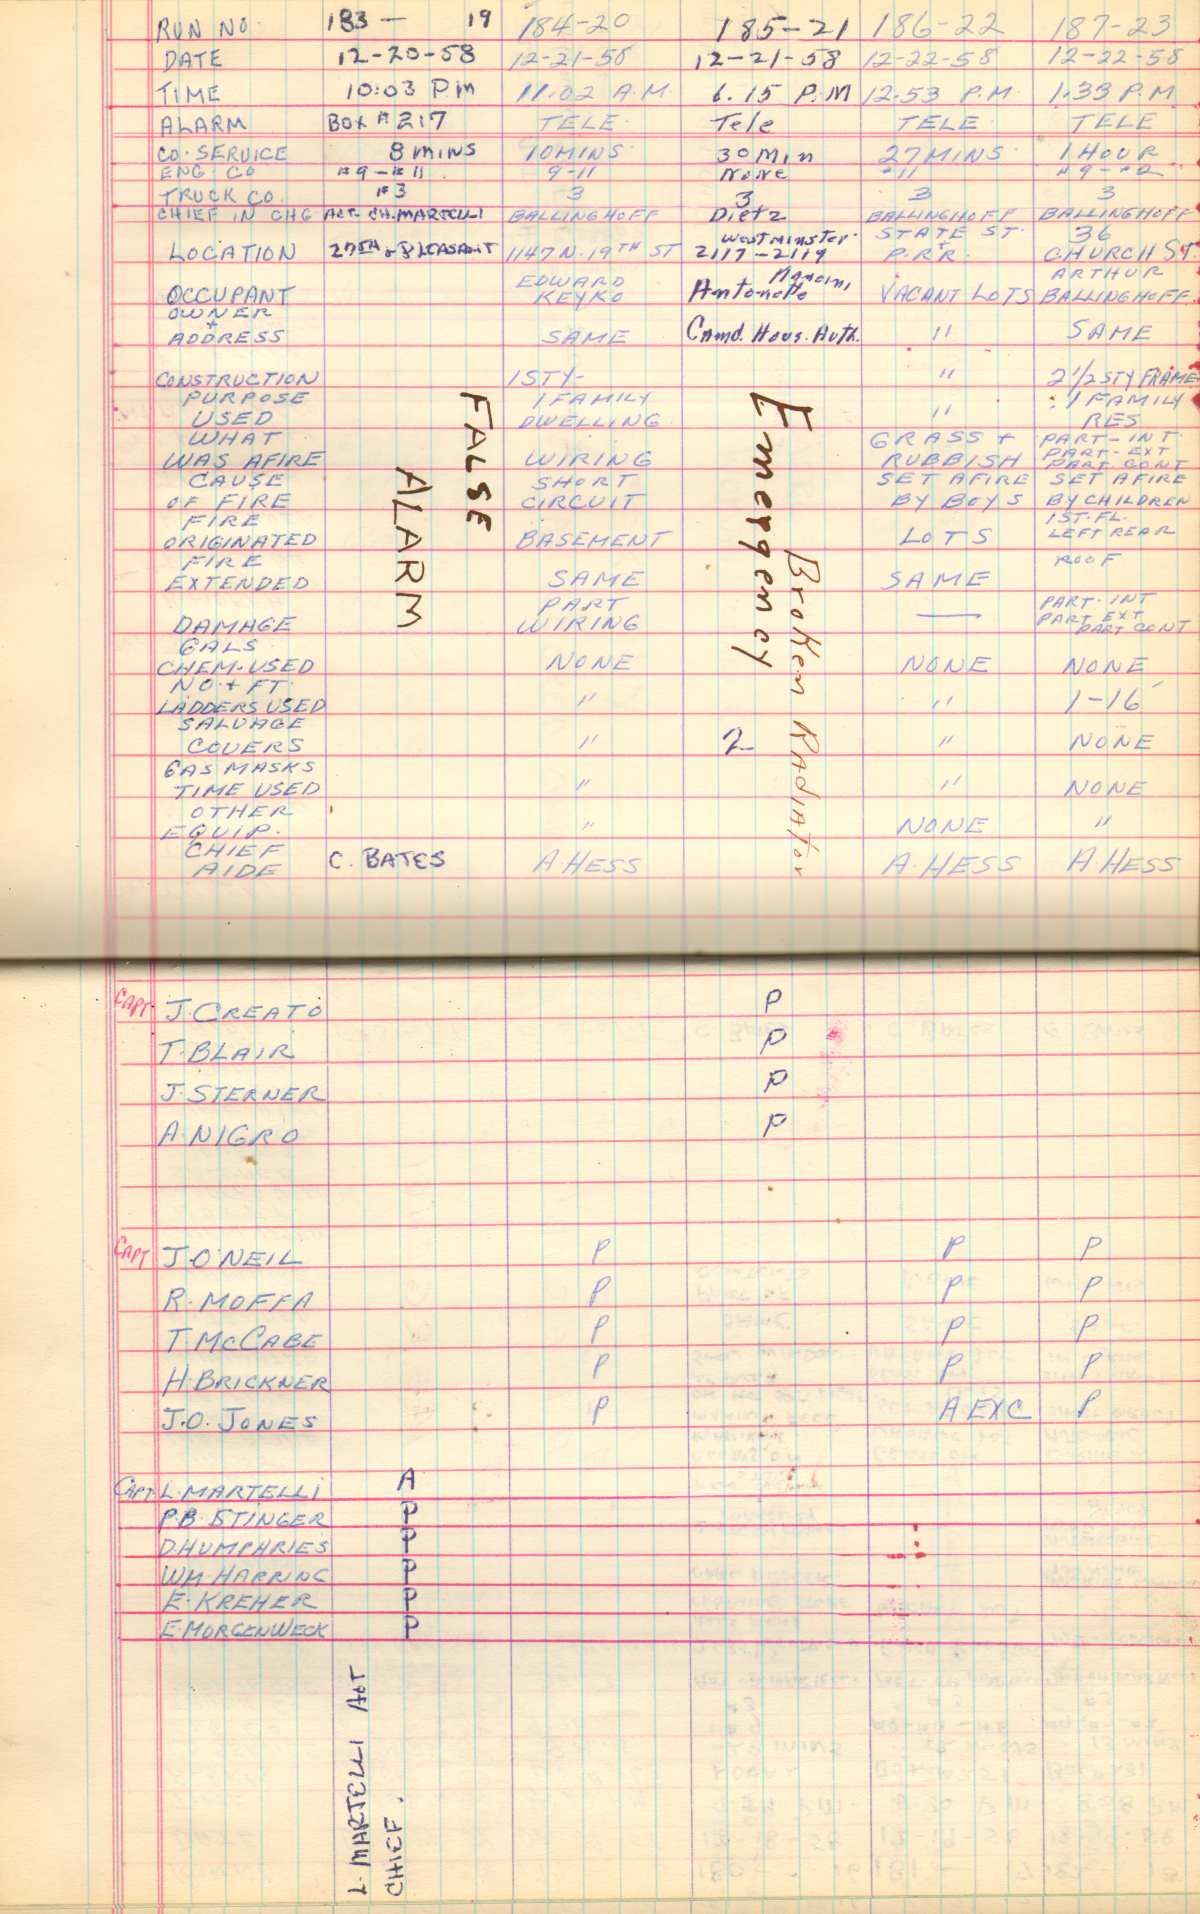 RUN NO. 183 — 19 184-20 185-21 186-22 187-23
DATE 12-20-58 12-21-58 12-21-58 12-22-58 12-22-58
TIME 10:03 PM 11.02 A.M. 6.15 P.M 12.53 P.M. 1.33 P.M
ALARM BOX # 217 TELE. Tele TELE. TELE
CO. SERVICE 8 MINS 10 MINS. 30 Min 27 MINS. 1 HOUR
ENG. CO #9-#11 9-11 None #11 #9-#2
TRUCK CO. #3 3 3 3 3
CHIEF IN CHG ACT. CH. MARTELLI BALLINGHOFF Dietz BALLINGHOFF BALLINGHOFF
LOCATION 27TH & PLEASANT 1147 N. 19TH ST Westminster 2117-2119 STATE ST. + P.R.R. 36 CHURCH ST.
OCCUPANT EDWARD KEYKO Antonette VACANT LOTS ARTHUR BALLINGHOFF
OWNER + ADDRESS SAME Camd. Hous. Auth. " SAME
CONSTRUCTION 1 STY- " 2 1/2 STY FRAME
PURPOSE USED 1 FAMILY DWELLING " 1 FAMILY RES
WHAT WAS AFIRE WIRING GRASS + RUBBISH PART-INT. PART-EXT PART CONT
CAUSE OF FIRE SHORT CIRCUIT SET AFIRE BY BOYS SET AFIRE BY CHILDREN
FIRE ORIGINATED BASEMENT LOTS 1ST. FL. LEFT REAR
FIRE EXTENDED SAME SAME ROOF
DAMAGE PART WIRING — PART-INT PART EXT PART CONT
GALS CHEM. USED NONE NONE NONE
NO. + FT. LADDERS USED " " 1-16'
SALVAGE COVERS " 2 " NONE
GAS MASKS TIME USED " " NONE
OTHER EQUIP. " NONE "
CHIEF AIDE C. BATES A. HESS A. HESS A. HESS
FALSE
ALARM
Emergency
Broken Radiator
CAPT. J. CREATO P
T. BLAIR P
J. STERNER P
A. NIGRO P
CAPT J. O'NEIL P P P
R. MOFFA P P P
T. McCABE P P P
H. BRICKNER P P P
J. O. JONES P A EXC P
CAPT. L. MARTELLI A
P.B. STINGER P
D. HUMPHRIES P
WM. HARRING P
E. KREHER P
E. MORGENWECK P
L. MARTELLI ACT
CHIEF.